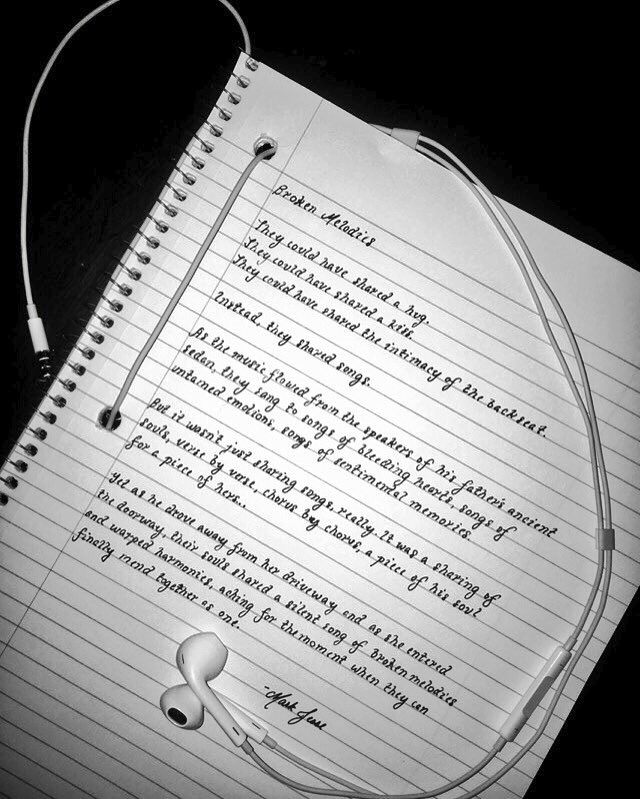 Broken Melodies
They could have shared a hug.
They could have shared a kiss.
They could have shared the intimacy of the backseat.
Instead, they shared songs.
As the music flowed from the speakers of his father's ancient
sedan, they sang to songs of bleeding hearts, songs of
untamed emotions, songs of sentimental memories
But it wasn't just sharing songs, really. It was a sharing of
souls, verse by verse, chorus by chorus, a piece of his soul
for a piece of hers..
Yet as he drove away from her driveway and as she entered
the doorway, their souls shared a silent song of broken melodies
and warped harmonies, aching for the moment when they can
finally mend together as one.
-Mark Jesse